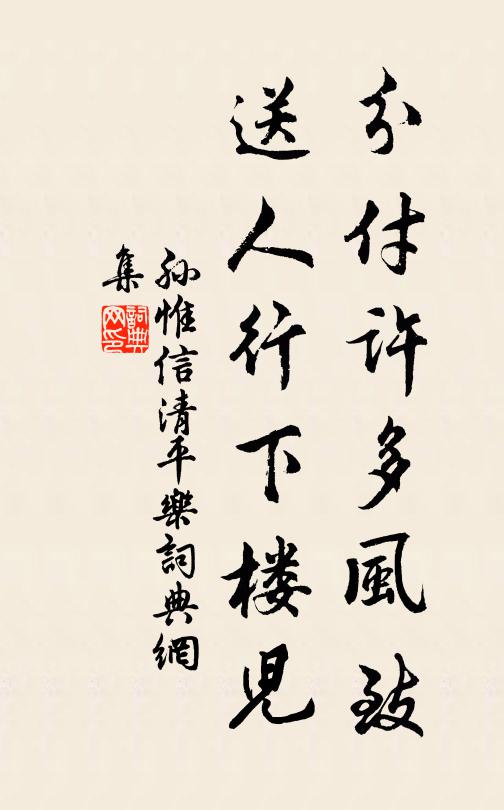 分付許多風致
送人行下楼児
孙惟信清平樂詞典網
集
詞典网印